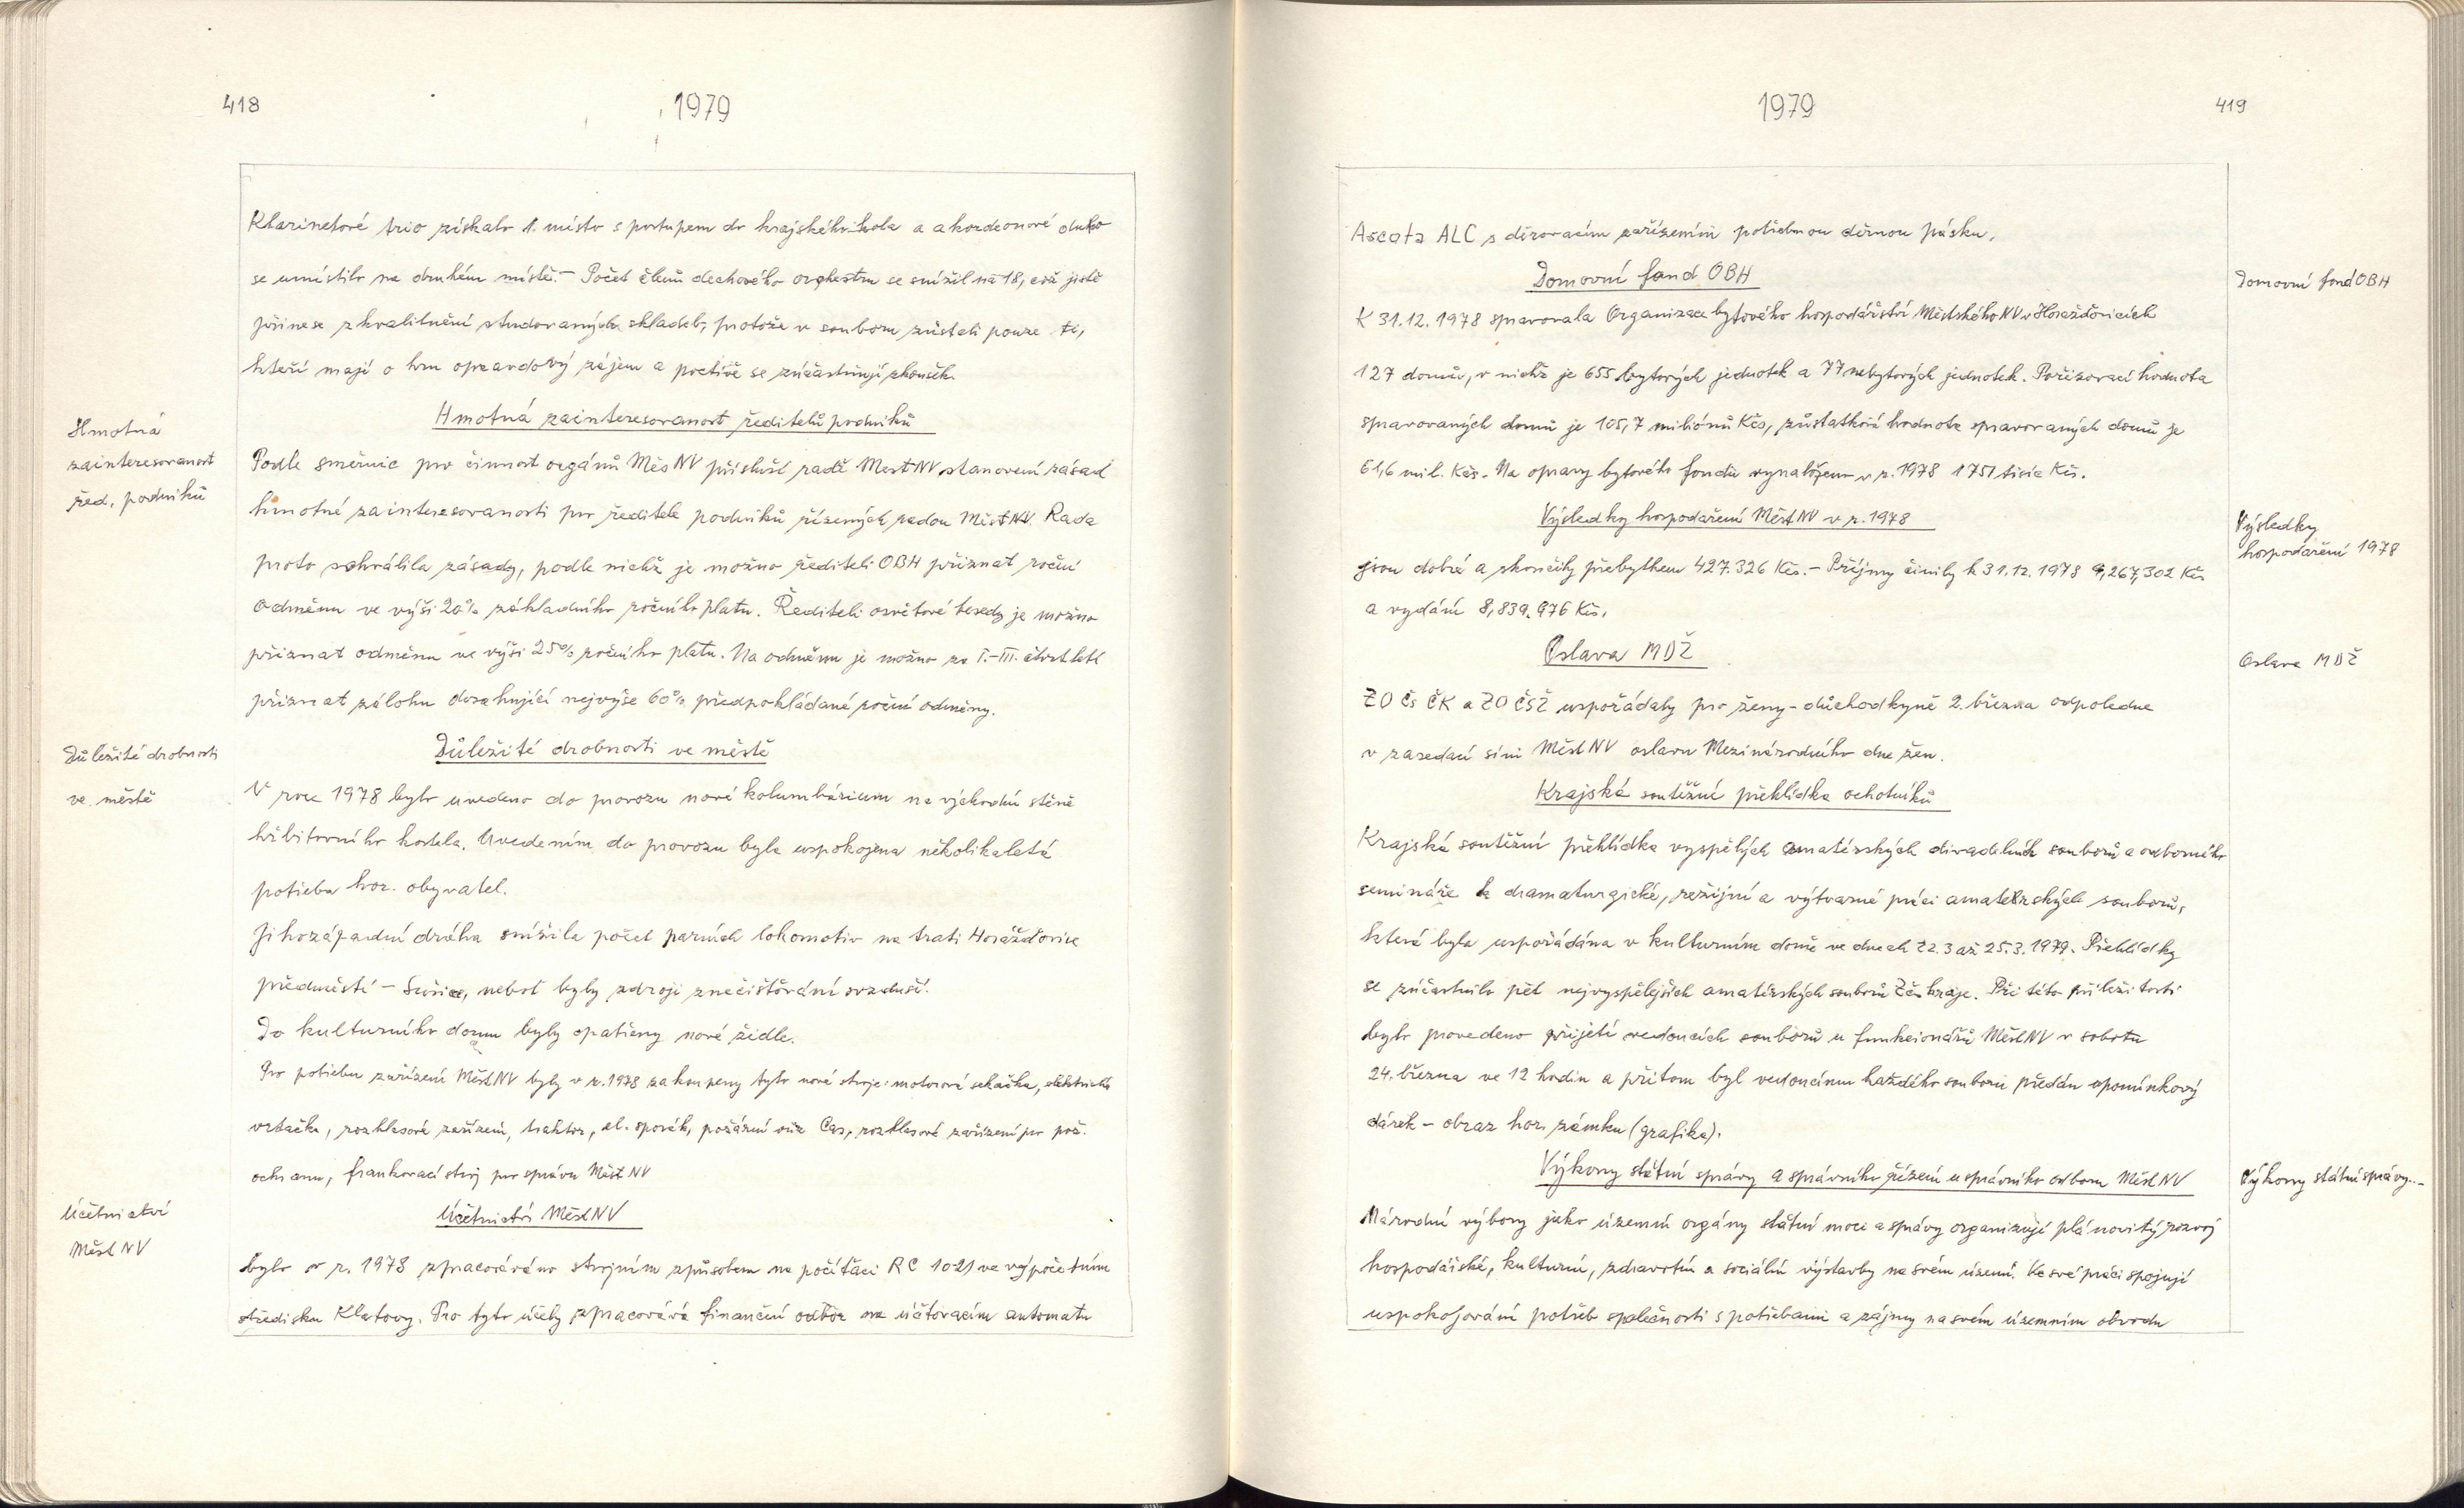 418
1979
Klarinetové trio získalo 1. místo s postupem do krajského kola a akordeonové duo
se umístilo na druhém místě. – Počet členů dechového orchestru se snížil na 18, což jistě
přinese zkvalitnění studovaných skladeb, protože v souboru zůstali pouze ti,
kteří mají o hru opravdový zájem a poctivě se zúčastňují zkoušek.
Hmotná
zainteresovanost
řed. podniků
Hmotná zainteresovanost ředitelů podniků
Podle směrnic pro činnost orgánů Měs NV přísluší radě MěstNV stanovení zásad
hmotné zainteresovanosti pro ředitele podniků řízených radou MěstNV. Rada
proto schválila zásady, podle nichž je možno řediteli OBH přiznat roční
odměnu ve výši 20% základního ročního platu. Řediteli osvětové besedy je možno
přiznat odměnu ve výši 25% ročního platu. Na odměnu je možno za I.–III. čtvrtletí
přiznat zálohu dosahující nejvýše 60% předpokládané roční odměny.
Důležité drobnosti
ve městě
Důležité drobnosti ve městě
V roce 1978 bylo uvedeno do provozu nové kolumbárium na východní stěně
hřbitovního kostela. Uvedením do provozu byla uspokojena několikaletá
potřeba hor. obyvatel.
Jihozápadní dráha snížila počet parních lokomotiv na trati Horažďovice
předměstí – Sušice, neboť byly zdroji znečišťování ovzduší.
Do kulturního domu byly opatřeny nové židle.
Pro potřebu zařízení MěstNV byly v r. 1978 zakoupeny tyto nové stroje: motorová sekačka, elektrická
vrtačka, rozhlasové zařízení, traktor, el. sporák, požární vůz Cas, rozhlasové zařízení pro pož.
ochranu, frankovací stroj pro správu Měst NV
Účetnictví
Měst NV
Účetnictví MěstNV
bylo v r. 1978 zpracováváno strojním způsobem na počítači RC 1021 ve výpočetním
středisku Klatovy. Pro tyto účely zpracovává finanční odbor na účtovacím automatu
1979
419
Ascota ALC s děrovacím zařízením potřebnou děrnou pásku.
Domovní fond OBH
Domovní fond OBH
K 31.12. 1978 spravovala Organizace bytového hospodářství Městského NV v Horažďovicích
127 domů, v nichž je 655 bytových jednotek a 77 nebytových jednotek. Pořizovací hodnota
spravovaných domů je 105,7 miliónů Kčs, zůstatková hodnota spravovaných domů je
61,6 mil. Kčs. Na opravy bytového fondu vynaloženo v r. 1978 1751 tisíc Kčs.
Výsledky hospodaření MěstNV v r. 1978
Výsledky
hospodaření 1978
jsou dobré a skončily přebytkem 427.326 Kčs. – Příjmy činily k 31.12. 1978 9,267,302 Kčs
a vydání 8,839.976 Kčs.
Oslava MDŽ
Oslava MDŽ
ZO Čs ČK a ZO ČSŽ uspořádaly pro ženy-důchodkyně 2. března odpoledne
v zasedací síni MěstNV oslavu Mezinárodního dne žen.
Krajská soutěžní přehlídka ochotníků
Krajská soutěžní přehlídka vyspělých amatérských divadelních souborů a odborného
semináře k dramaturgické, režijní a výtvarné práci amatérských souborů,
která byla uspořádána v kulturním domě ve dnech 22.3 až 25.3.1979. Přehlídky
se zúčastnilo pět nejvyspělejších amatérských souborů Zčs kraje. Při této příležitosti
bylo provedeno přijetí vedoucích souborů u funkcionářů MěstNV v sobotu
24. března ve 12 hodin a přitom byl vedoucímu každého souboru předán upomínkový
dárek – obraz hor. zámku (grafika).
Výkony státní správy a správního řízení u správního odboru Měst NV
Výkony státní správy...
Národní výbory jako územní orgány státní moci a správy organizují plánovitý rozvoj
hospodářské, kulturní, zdravotní a sociální výstavby na svém území. Ve své práci spojují
uspokojování potřeb společnosti s potřebami a zájmy na svém územním obvodu